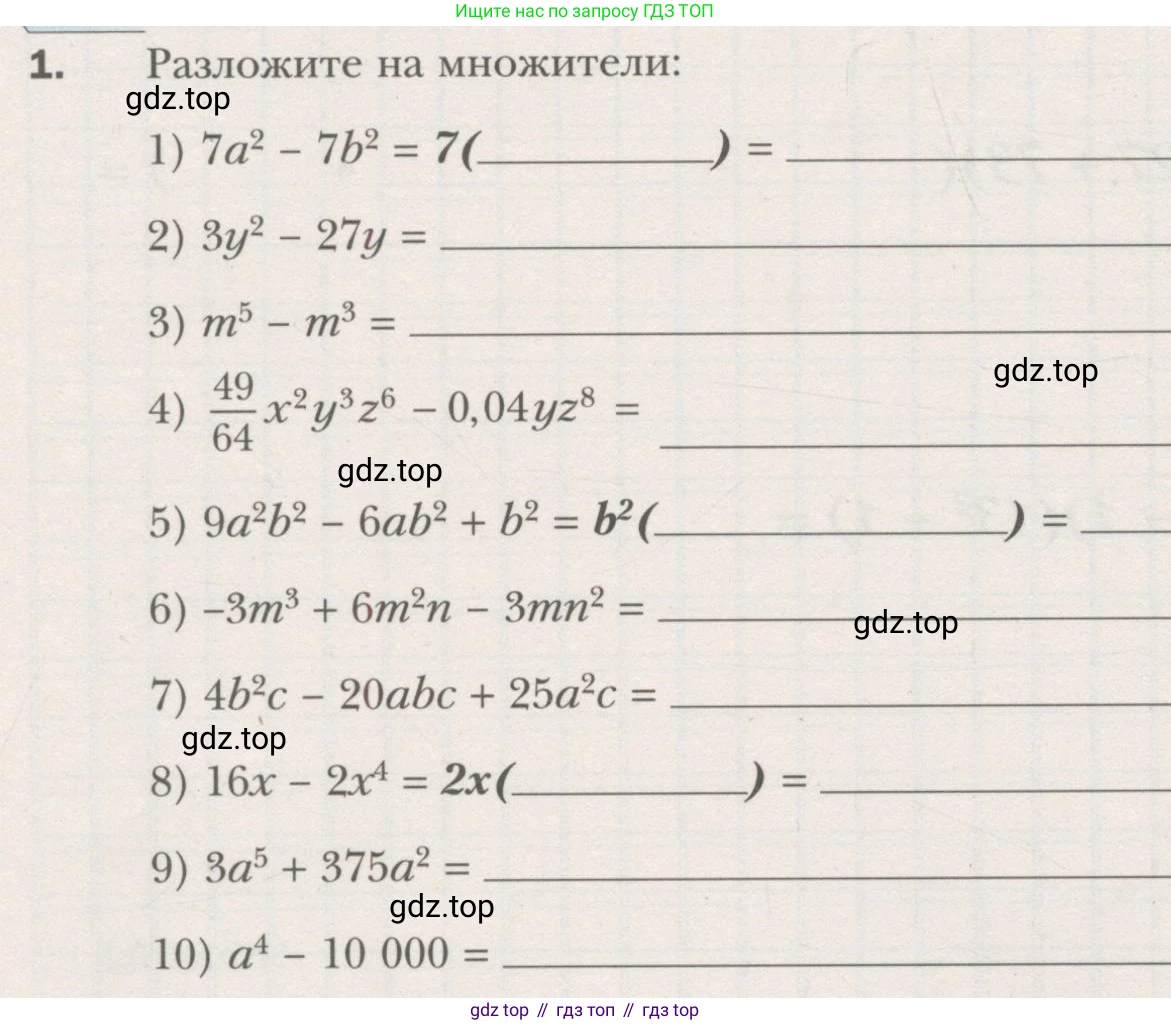 Ищите нас по запросу ГДЗ ТОП
1. Разложите на множители:
gdz.top
1) 7a² − 7b² = 7(__________) = __________
2) 3y² − 27y = __________
3) m⁵ − m³ = __________
gdz.top
4) 49/64 x²y³z⁶ − 0,04yz⁸ = __________
gdz.top
5) 9a²b² − 6ab² + b² = b²(__________) = __________
6) −3m³ + 6m²n − 3mn² = __________
gdz.top
7) 4b²c − 20abc + 25a²c = __________
gdz.top
8) 16x − 2x⁴ = 2x(__________) = __________
9) 3a⁵ + 375a² = __________
gdz.top
10) a⁴ − 10 000 = __________
gdz top // гдз топ // гдз top